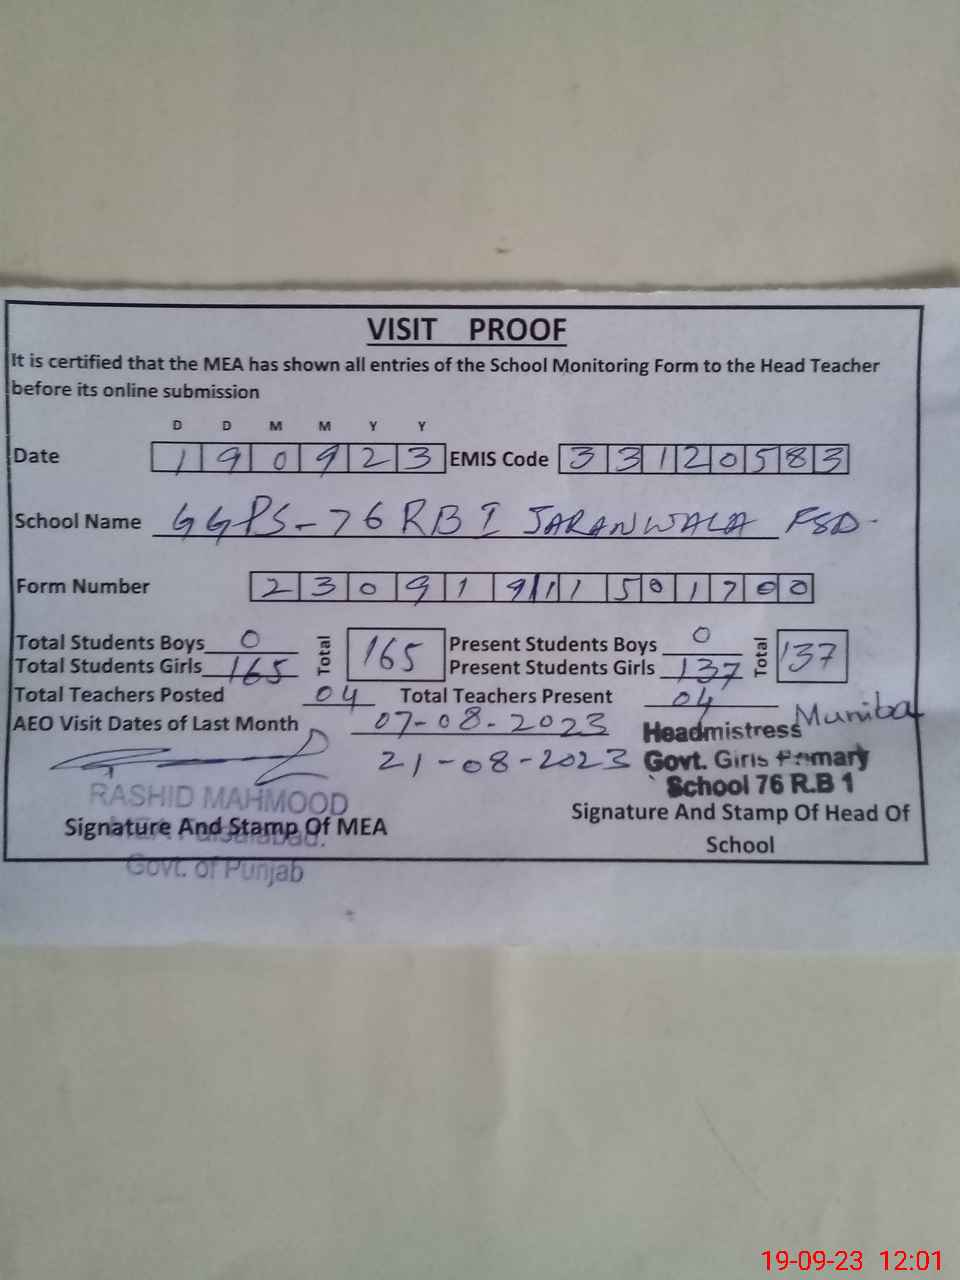 VISIT PROOF
It is certified that the MEA has shown all entries of the School Monitoring Form to the Head Teacher
before its online submission
D D M M Y Y
Date 1 9 0 9 2 3 EMIS Code 3 3 1 2 0 5 8 3
School Name GGPS-76 RB I JARANWALA FSD.
Form Number 2 3 0 9 1 9 1 1 5 0 1 7 0 0
Total Students Boys 0 Total 165 Present Students Boys 0 Total 137
Total Students Girls 165 Present Students Girls 137
Total Teachers Posted 04 Total Teachers Present 04
AEO Visit Dates of Last Month 07-08-2023 Muniba
21-08-2023
Headmistress
Govt. Girls Primary
School 76 R.B 1
RASHID MAHMOOD
MEA Faisalabad.
Govt. of Punjab
Signature And Stamp Of MEA
Signature And Stamp Of Head Of
School
19-09-23 12:01